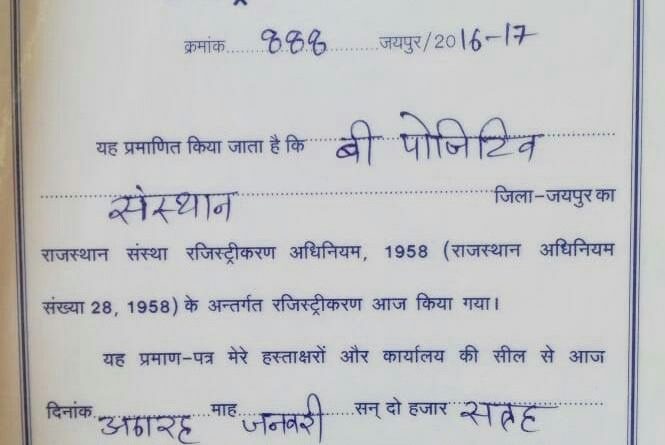 क्रमांक 888 जयपुर/2016-17
यह प्रमाणित किया जाता है कि बी पोजिटिव
संस्थान जिला-जयपुर का
राजस्थान संस्था रजिस्ट्रीकरण अधिनियम, 1958 (राजस्थान अधिनियम
संख्या 28, 1958) के अन्तर्गत रजिस्ट्रीकरण आज किया गया।
यह प्रमाण-पत्र मेरे हस्ताक्षरों और कार्यालय की सील से आज
दिनांक अठारह माह जनवरी सन् दो हजार सत्रह